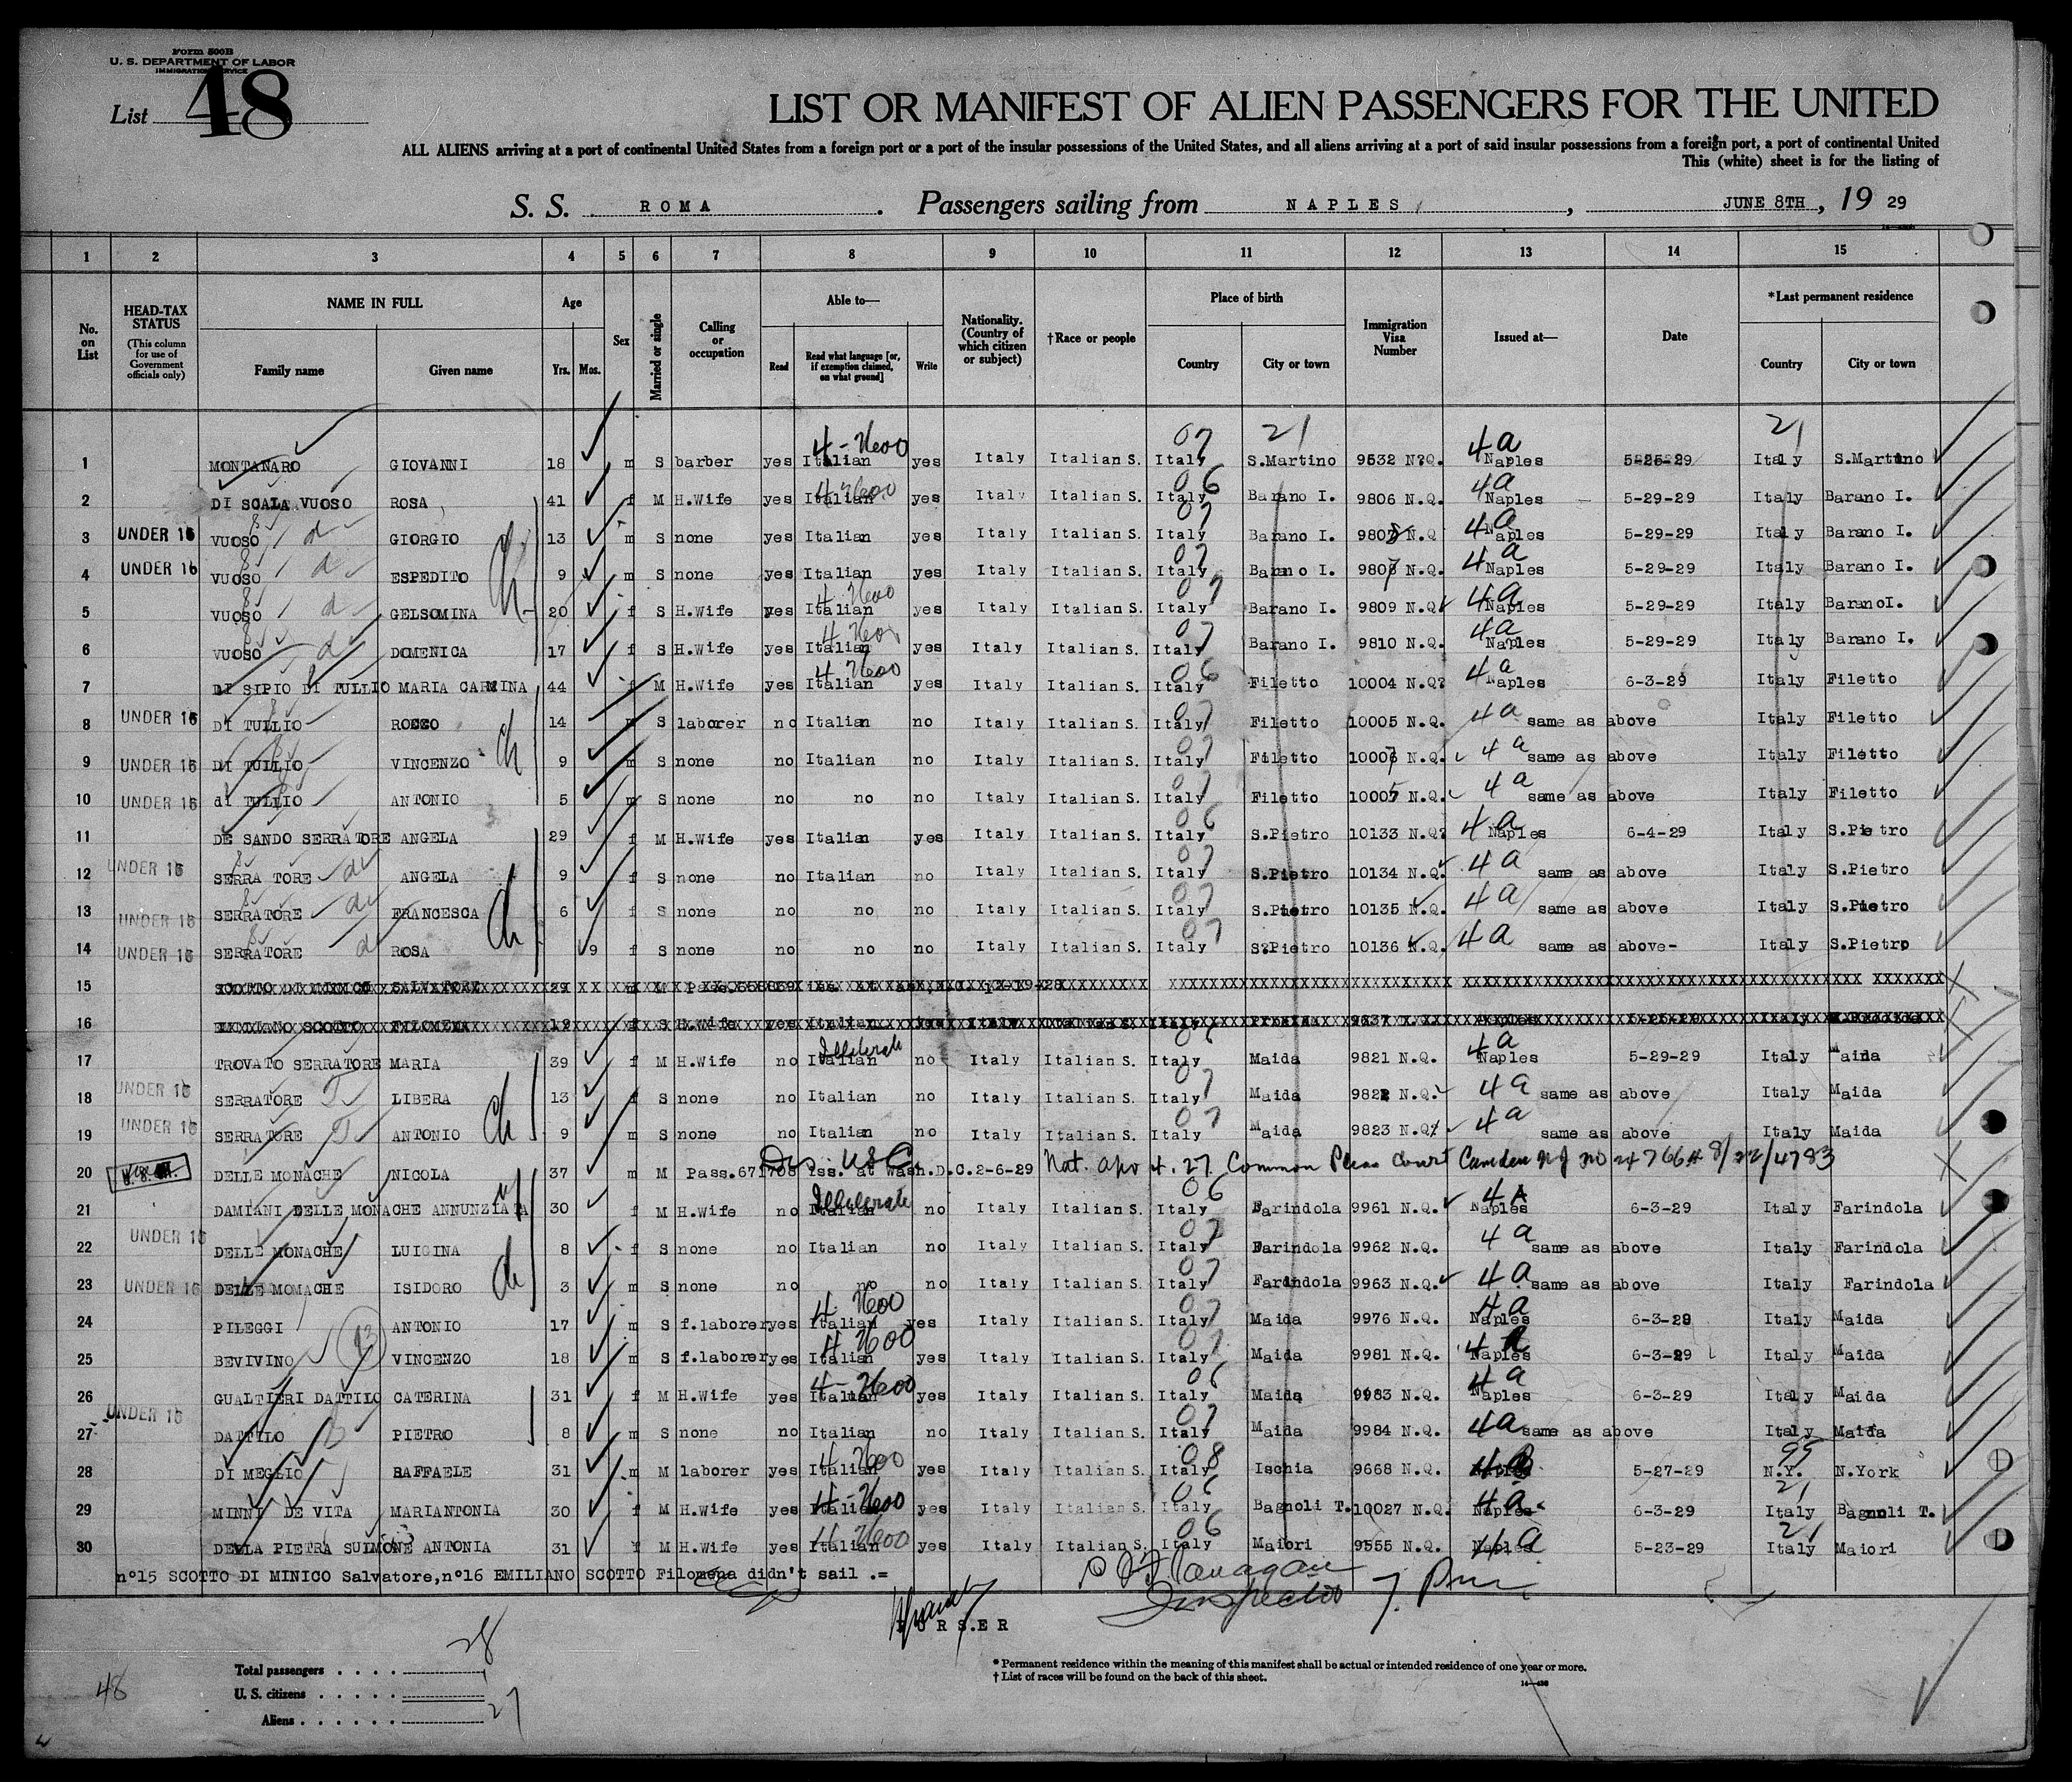 Form 500B
U. S. DEPARTMENT OF LABOR
IMMIGRATION SERVICE
List 48
LIST OR MANIFEST OF ALIEN PASSENGERS FOR THE UNITED
ALL ALIENS arriving at a port of continental United States from a foreign port or a port of the insular possessions of the United States, and all aliens arriving at a port of said insular possessions from a foreign port, a port of continental United
This (white) sheet is for the listing of
S. S. ROMA. Passengers sailing from NAPLES, JUNE 8TH, 19 29
1 2 3 4 5 6 7 8 9 10 11 12 13 14 15
No. on List
HEAD-TAX STATUS (This column for use of Government officials only)
NAME IN FULL Family name Given name
Age Yrs. Mos.
Sex
Married or single
Calling or occupation
Able to— Read Read what language [or, if exemption claimed, on what ground] Write
Nationality. (Country of which citizen or subject)
†Race or people
Place of birth Country City or town
Immigration Visa Number
Issued at—
Date
*Last permanent residence Country City or town
07 21 21
1 MONTANARO GIOVANNI 18 m S barber yes Italian yes Italy Italian S. Italy S.Martino 9532 N.Q. 4a Naples 5-25-29 Italy S.Martino
2 DI SCALA VUOSO ROSA 41 f M H.Wife yes Italian yes Italy Italian S. Italy 06 Barano I. 9806 N.Q. 4a Naples 5-29-29 Italy Barano I.
3 UNDER 16 VUOSO GIORGIO 13 m S none yes Italian yes Italy Italian S. Italy 07 Barano I. N.Q 4a Naples 5-29-29 Italy Barano I.
4 UNDER 16 VUOSO ESPEDITO 9 m S none yes Italian yes Italy Italian S. Italy 07 Barano I. N.Q. 4a Naples 5-29-29 Italy Barano I.
5 VUOSO GELSOMINA 20 f S H.Wife yes Italian yes Italy Italian S. Italy 07 Barano I. 9809 N.Q 4a Naples 5-29-29 Italy BaranoI.
6 VUOSO DOMENICA 17 f S H.Wife yes Italian yes Italy Italian S. Italy 07 Barano I. 9810 N.Q. 4a Naples 5-29-29 Italy Barano I.
7 DI SIPIO DI TULLIO MARIA CARMINA 44 f M H.Wife yes Italian yes Italy Italian S. Italy 06 Filetto 10004 N.Q. 4a Naples 6-3-29 Italy Filetto
8 UNDER 16 DI TULLIO ROCCO 14 m S laborer no Italian no Italy Italian S. Italy 07 Filetto 10005 N.Q. 4a same as above Italy Filetto
9 UNDER 16 DI TULLIO VINCENZO 9 m S none no Italian no Italy Italian S. Italy 07 Filetto N.Q. 4a same as above Italy Filetto
10 UNDER 16 di TULLIO ANTONIO 5 m S none no no no Italy Italian S. Italy 07 Filetto N.Q. 4a same as above Italy Filetto
11 DE SANDO SERRATORE ANGELA 29 f M H.Wife yes Italian yes Italy Italian S. Italy 06 S.Pietro 10133 N.Q. 4a Naples 6-4-29 Italy S.Pietro
12 UNDER 16 SERRA TORE ANGELA 9 f S none no Italian no Italy Italian S. Italy 07 S.Pietro 10134 N.Q. 4a same as above Italy S.Pietro
13 UNDER 16 SERRATORE FRANCESCA 6 f S none no no no Italy Italian S. Italy 07 S.Pietro 10135 N.Q. 4a same as above Italy S.Pietro
14 UNDER 16 SERRATORE ROSA 9 f S none no no no Italy Italian S. Italy 07 S.Pietro 10136 N.Q. 4a same as above- Italy S.Pietro
15 SCOTTO DI MINICO SALVATORE
16 EMILIANO SCOTTO FILOMENA
17 TROVATO SERRATORE MARIA 39 f M H.Wife no Italian no Italy Italian S. Italy 06 Maida 9821 N.Q. 4a Naples 5-29-29 Italy Maida
18 UNDER 16 SERRATORE LIBERA 13 f S none no Italian no Italy Italian S. Italy 07 Maida 9822 N.Q. 4a same as above Italy Maida
19 UNDER 16 SERRATORE ANTONIO 9 m S none no Italian no Italy Italian S. Italy 07 Maida 9823 N.Q. 4a same as above Italy Maida
20 DELLE MONACHE NICOLA 37 m M Pass.671708 iss. at Wash.D.C.2-6-29 Nat. Apr 4. 27. Common Pleas Court Camden NJ no
21 DAMIANI DELLE MONACHE ANNUNZIATA 30 f M H.Wife no Italian no Italy Italian S. Italy 06 Farindola 9961 N.Q. 4A Naples 6-3-29 Italy Farindola
22 UNDER 16 DELLE MONACHE LUIGINA 8 f S none no Italian no Italy Italian S. Italy 07 Farindola 9962 N.Q. 4a same as above Italy Farindola
23 UNDER 16 DELLE MONACHE ISIDORO 3 m S none no no no Italy Italian S. Italy 07 Farindola 9963 N.Q. 4a same as above Italy Farindola
24 PILEGGI ANTONIO 17 m S f.laborer yes Italian yes Italy Italian S. Italy 07 Maida 9976 N.Q. 4a Naples 6-3-29 Italy Maida
25 BEVIVINO VINCENZO 18 m S f.laborer yes Italian yes Italy Italian S. Italy 07 Maida 9981 N.Q. 4a Naples 6-3-29 Italy Maida
26 GUALTIERI DATTILO CATERINA 31 f M H.Wife yes Italian yes Italy Italian S. Italy 06 Maida 9983 N.Q. 4a Naples 6-3-29 Italy Maida
27 UNDER 16 DATTILO PIETRO 8 m S none no Italian no Italy Italian S. Italy 07 Maida 9984 N.Q. 4a same as above Italy Maida
28 DI MEGLIO RAFFAELE 31 m M laborer yes Italian yes Italy Italian S. Italy 08 Ischia 9668 N.Q. Naples 5-27-29 99 N.Y. N.York
29 MINNI DE VITA MARIANTONIA 30 f M H.Wife yes Italian yes Italy Italian S. Italy 06 Bagnoli T. 10027 N.Q. 4a Naples 6-3-29 21 Italy Bagnoli T.
30 DELLA PIETRA SUIMONE ANTONIA 31 f M H.Wife yes Italian yes Italy Italian S. Italy 06 Maiori 9555 N.Q. 4a Naples 5-23-29 21 Italy Maiori
n°15 SCOTTO DI MINICO Salvatore,n°16 EMILIANO SCOTTO Filomena didn't sail .=
Inspector
PURSER
28
Total passengers
U. S. citizens 1
Aliens 27
48
* Permanent residence within the meaning of this manifest shall be actual or intended residence of one year or more.
† List of races will be found on the back of this sheet.